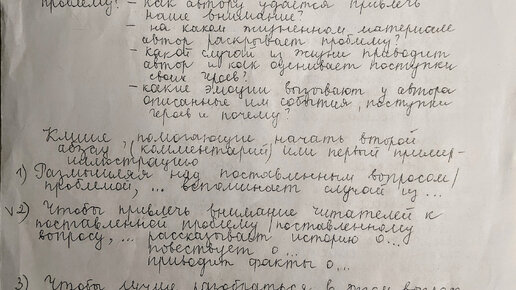 проблему? – как автору удаётся привлечь
наше внимание?
– на каком жизненном материале
автор раскрывает проблему?
– какой случай из жизни приводит
автор и как оценивает поступки
своих героев?
– какие эмоции вызывают у автора
описанные им события, поступки
героев и почему?
Клише, помогающие начать второй
абзац, (комментарий) или первый пример-
иллюстрацию
1) Размышляя над поставленным вопросом/
проблемой, ... вспоминает случай из ...
√2) Чтобы привлечь внимание читателей к
поставленной проблему/поставленному
вопросу, ... рассказывает историю о...
повествует о...
приводит факты о...
3) Чтобы лучше разобраться в этом вопросе